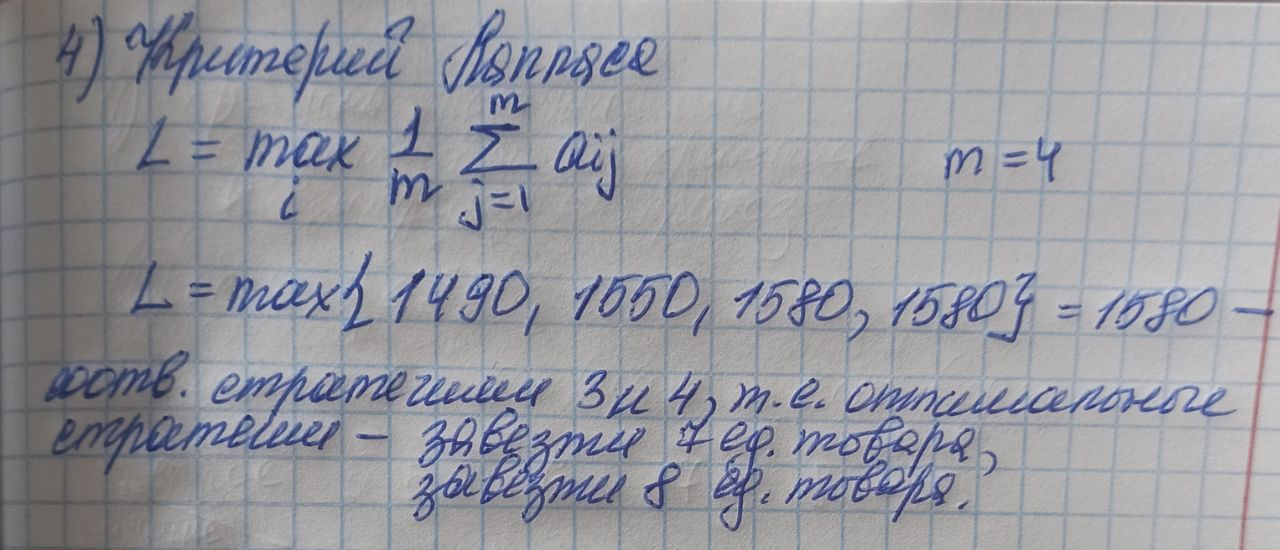 4) Критерий Лапласа
L = max_i 1/m ∑_{j=1}^{m} aij m = 4
L = max{ 1490, 1550, 1580, 1580} = 1580 –
соотв. стратегиям 3 и 4, т.е. оптимальные
стратегии – завезти 7 ед. товара,
завезти 8 ед. товара.